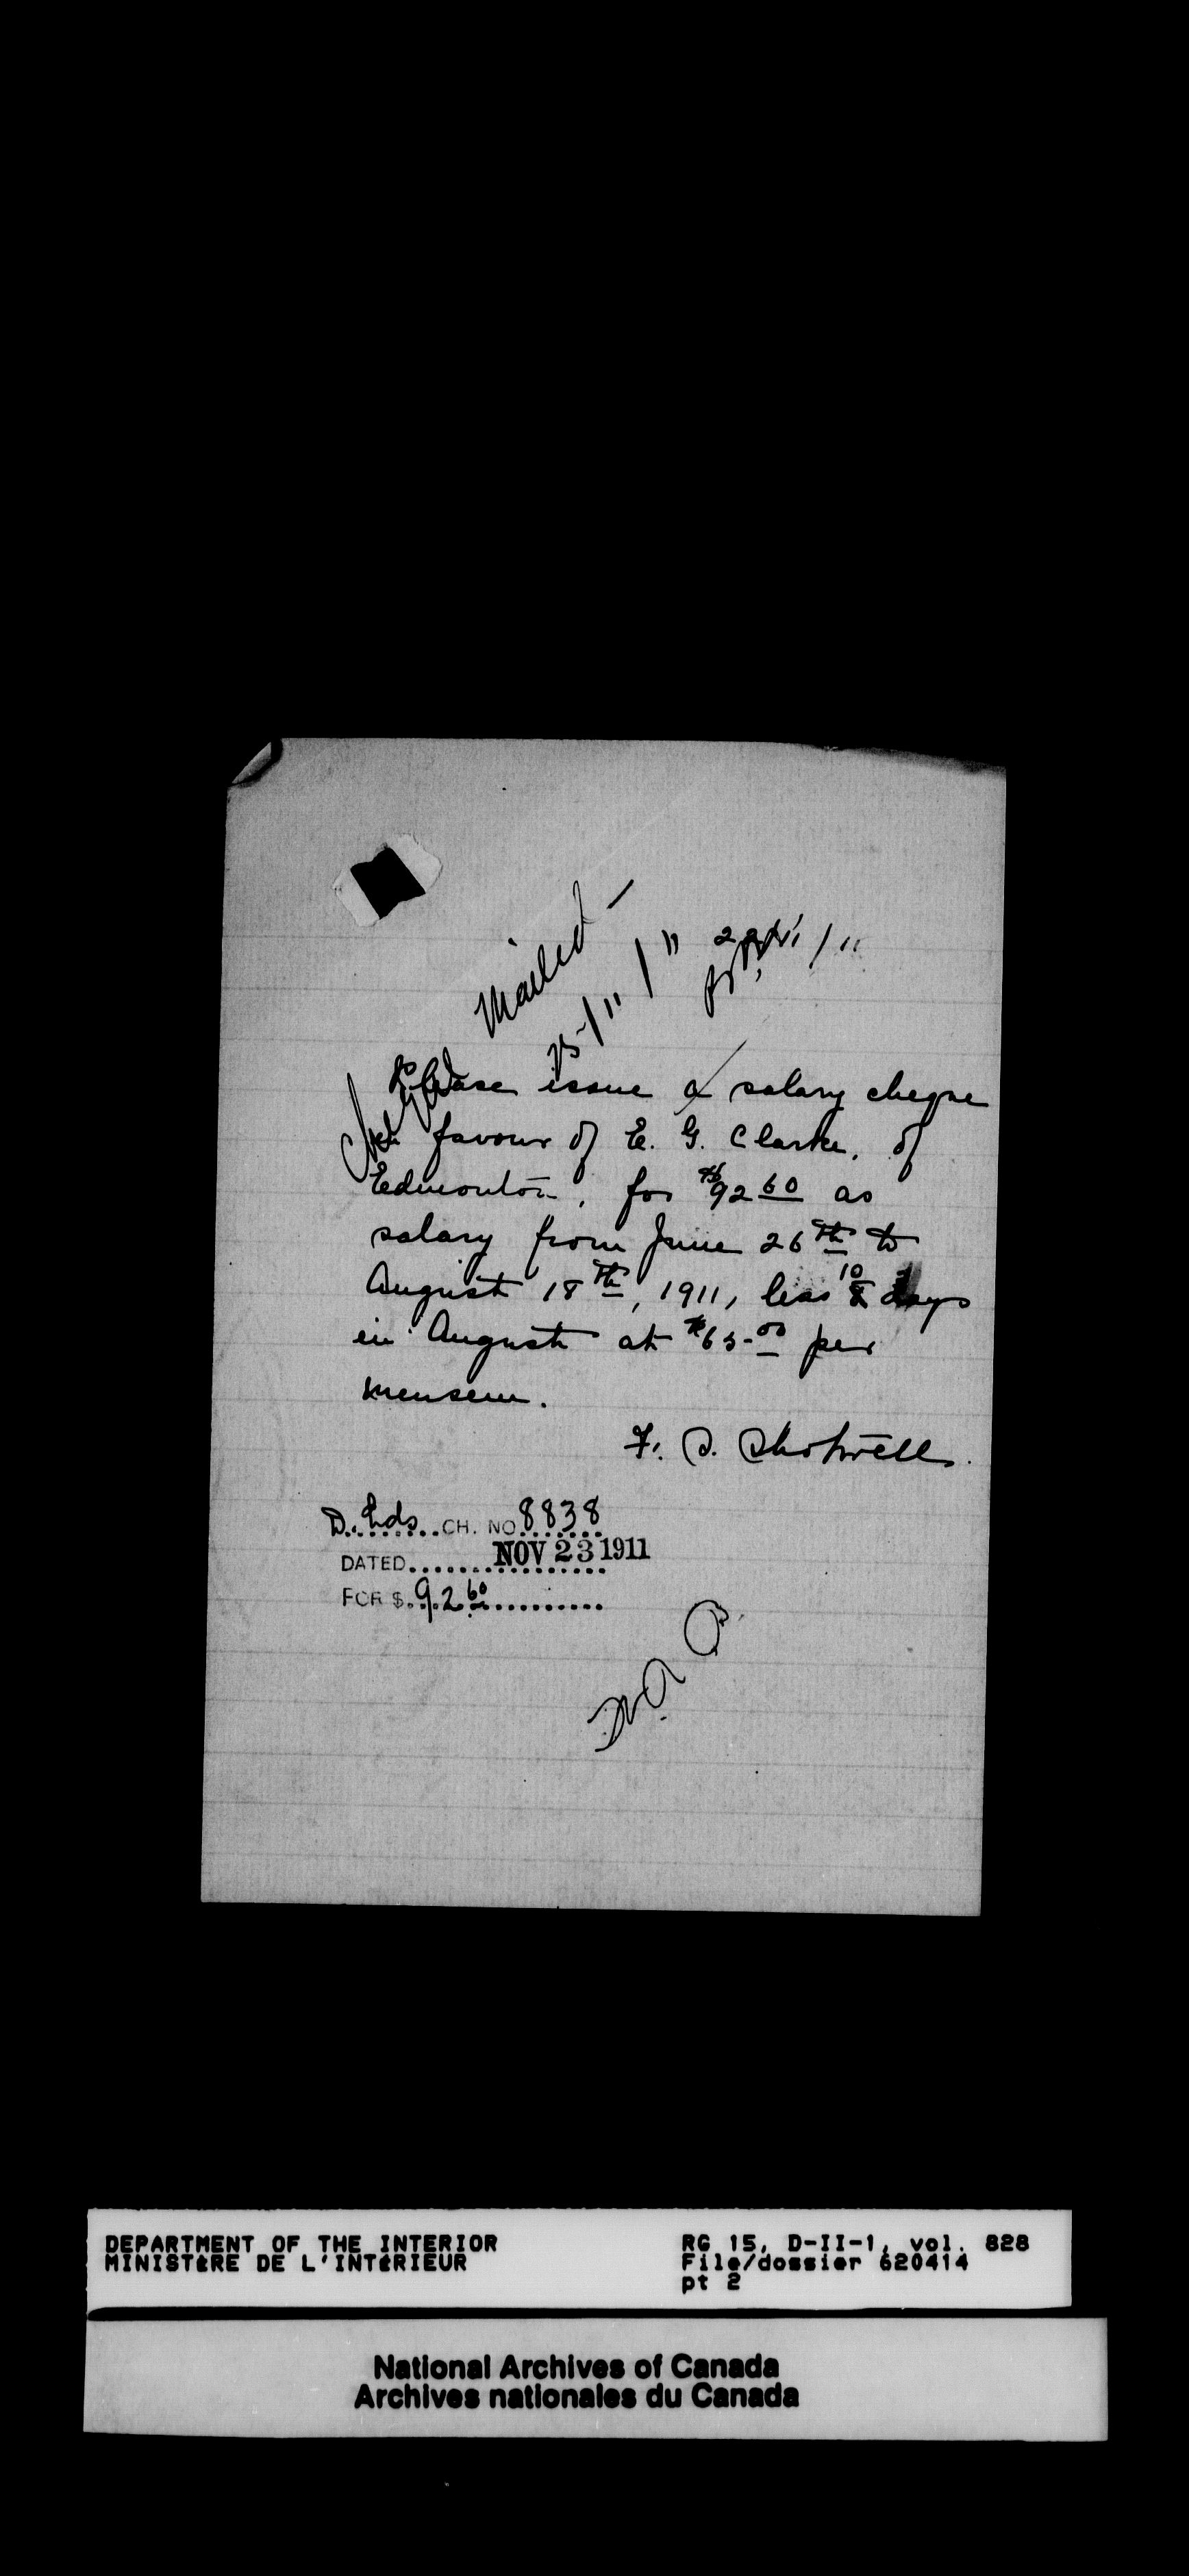 Mailed
25/11/11 22/11/11
Please issue a salary cheque
in favour of E. G. Clarke, of
Edmonton, for $92 60 as
salary from June 26th to
August 18th, 1911, less 10 8 days
in August at $65.00 per
mensem.
F. S. Shotwell.
D. Lds CH. NO. 8838
DATED NOV 23 1911
FOR $ 92 60
DEPARTMENT OF THE INTERIOR RG 15, D-II-1, vol. 828
MINISTÈRE DE L'INTÉRIEUR File/dossier 620414
pt 2
National Archives of Canada
Archives nationales du Canada